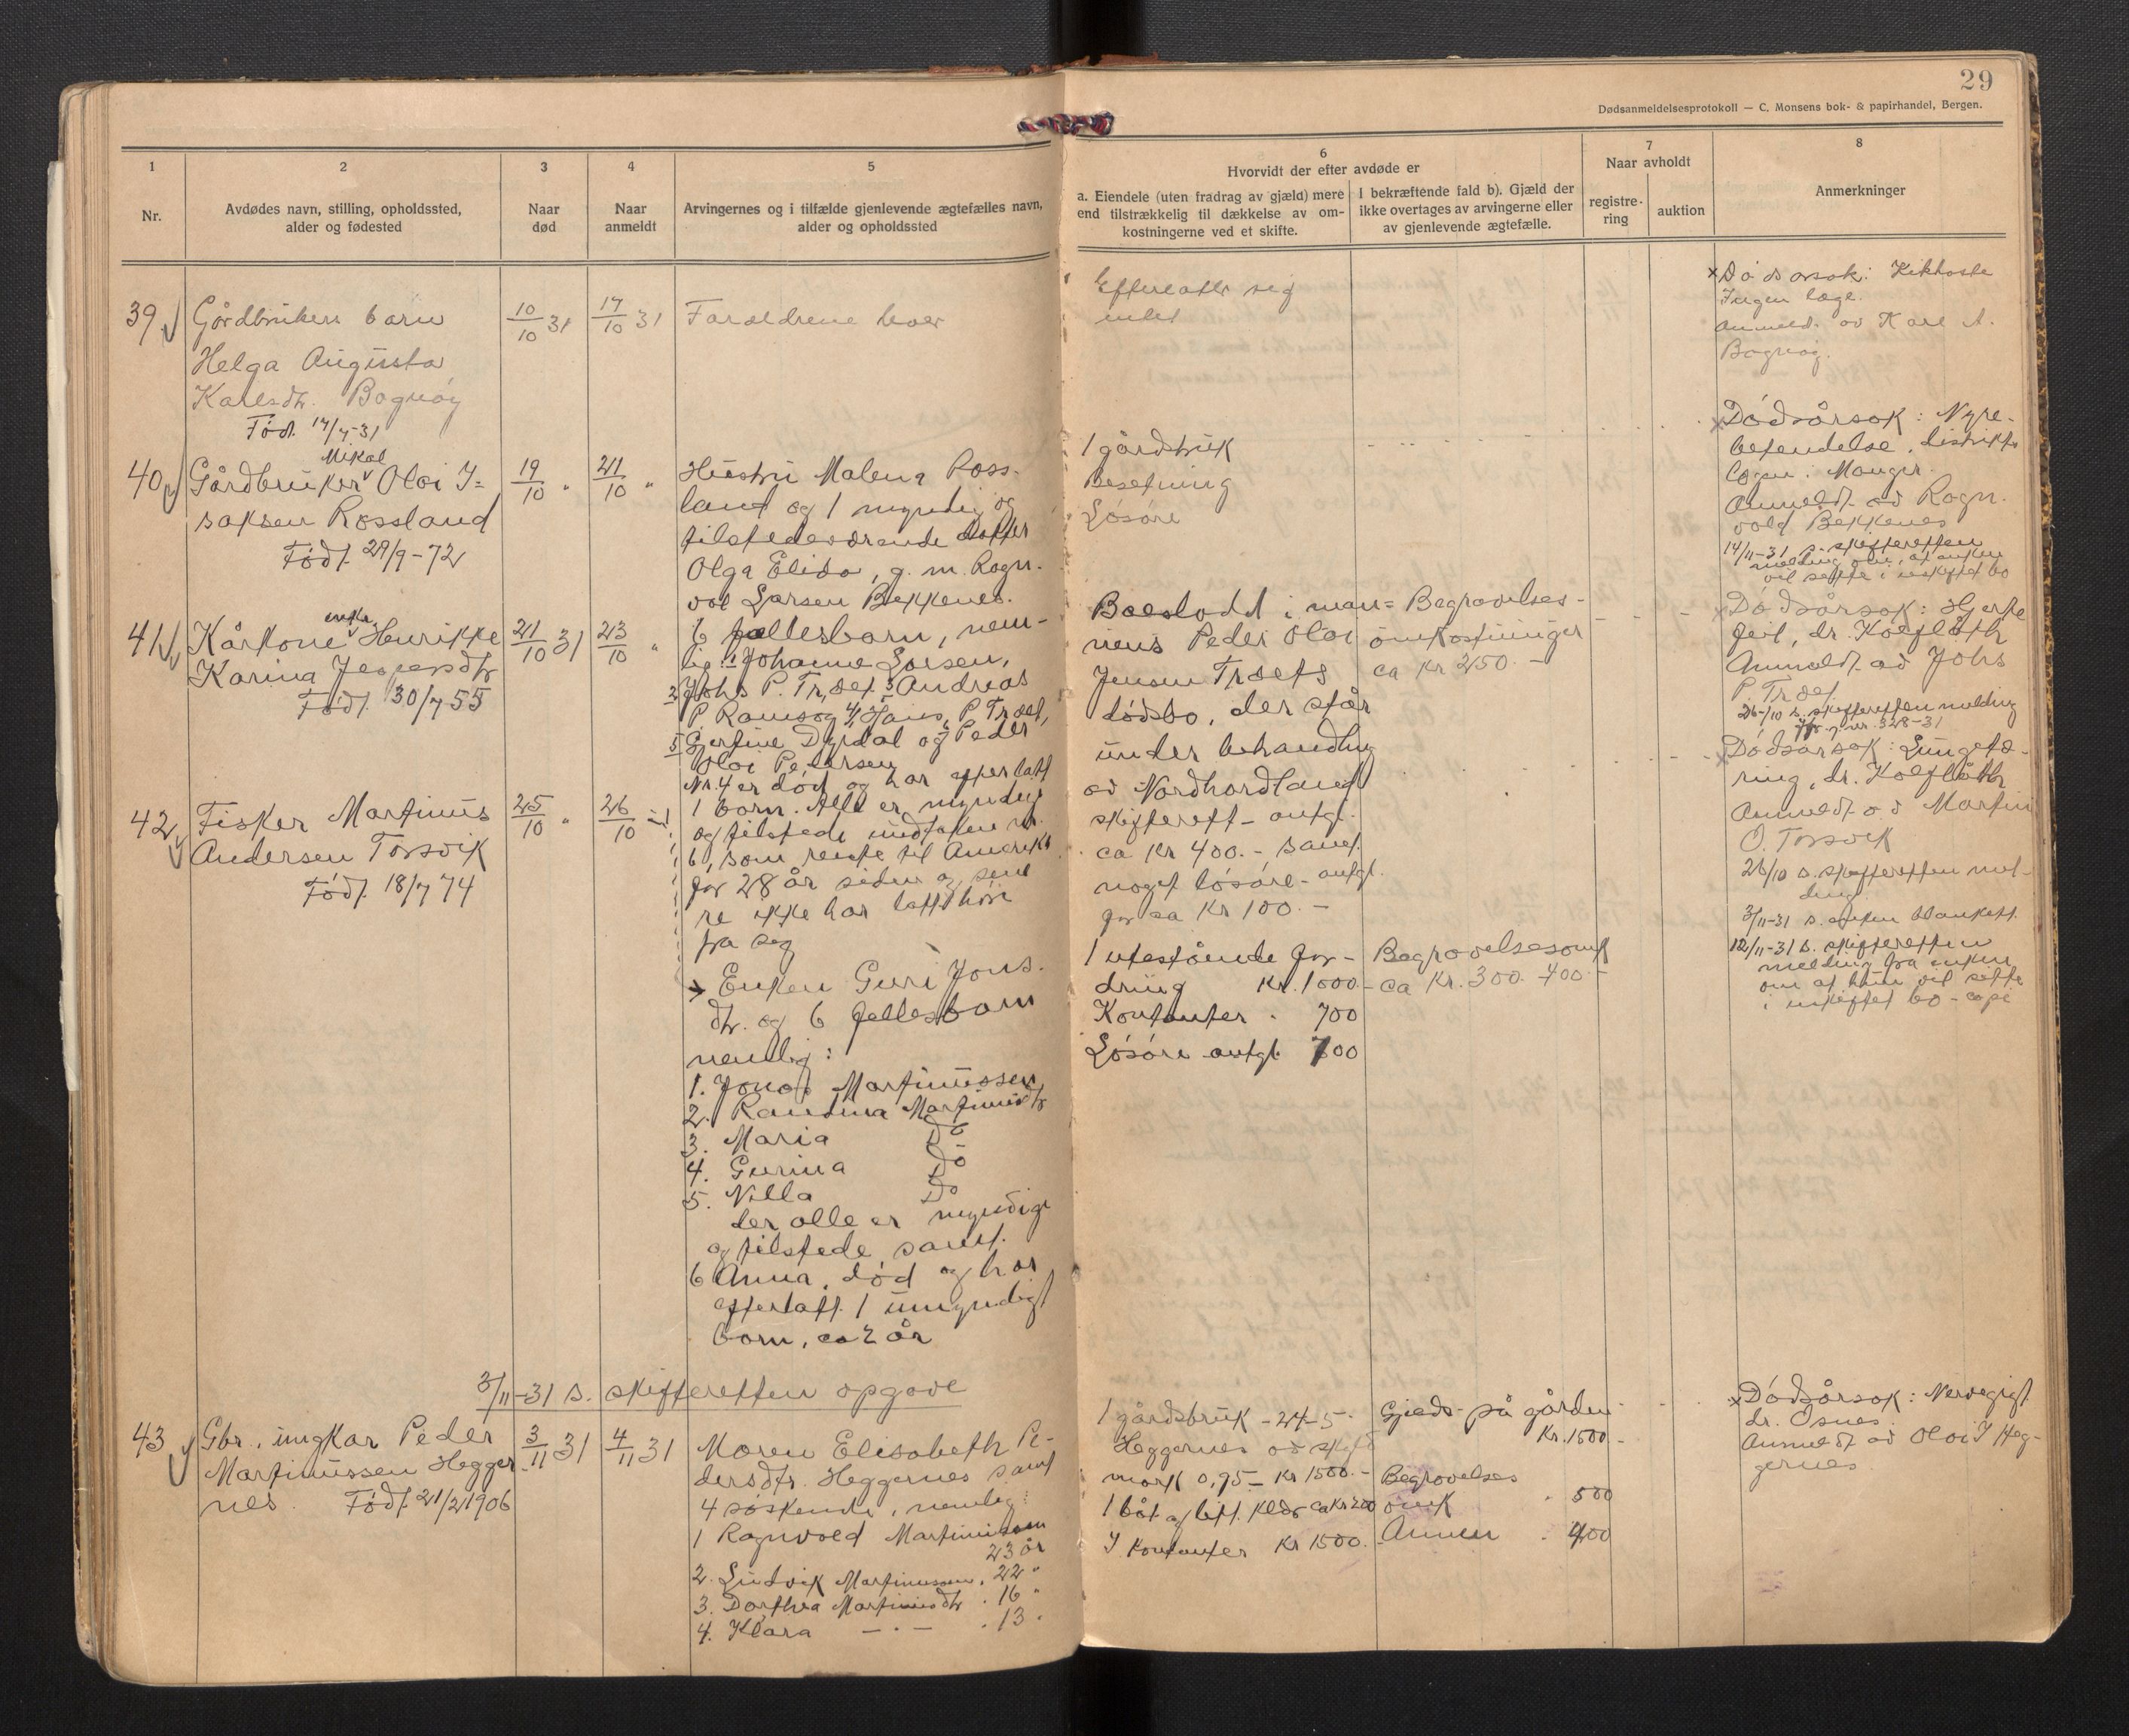 29
Dødsanmeldelsesprotokoll — C. Monsens bok- & papirhandel, Bergen.
1
Nr.
2
Avdødes navn, stilling, opholdssted,
alder og fødested
3
Naar
død
4
Naar
anmeldt
5
Arvingernes og i tilfælde gjenlevende ægtefælles navn,
alder og opholdssted
6
Hvorvidt der efter avdøde er
a. Eiendele (uten fradrag av gjæld) mere
end tilstrækkelig til dækkelse av om-
kostningerne ved et skifte.
I bekræftende fald b). Gjæld der
ikke overtages av arvingerne eller
av gjenlevende ægtefælle.
7
Naar avholdt
registre-
ring
auktion
8
Anmerkninger
39
Gårdbrukers barn
Helga Augusta
Karlsdtr. Bognøy
Fød.
10/10 31
17/10 31
Foreldrene lever
Efterlatt sig
intet
Dødsårsak: Kikhoste
Ingen læge.
Anmeld. av Karl A.
Bognøy.
40
Mikal
Gårdbruker Olai I=
saksen Rossland
Født 29/9-72
19/10 "
21/10 "
Hustru Malena Ross-
land og 1 myndig og
tilstedeværende datter
Olga Elida, g. m. Ragn-
val Larsen Bekkenes.
1 gårdsbruk
Besetning
Løsøre
Dødsårsak: Nyre-
betendelse. distrikts
legen i Manger.
Anmeldt av Ragn-
vald Bekkenes
14/11-31 s. skifteretten
melding om, at enken
vil sitte i uskiftet bo
41
enke
Kårkone Henrikke
Karina Jespersdtr
Født 30/7 55
21/10 31
23/10 "
6 fellesbarn, nem-
lig: 1 Johanne Larsen,
2 Johs P. Træt. 3 Andreas
P. Ramsøg 4, Hans P. Træt,
5 Gjertine Dyrdal og 6 Peder
Olai Pedersen
Nr. 4 er død og har efterlatt
1 barn. Alle er myndige
og tilstede undtaken nr.
6, som reiste til Amerika
for 28 år siden og sene
re ikke har latt høre
fra seg
Boeslodd i man=
nens Peder Olai
Jensen Træts
dødsbo, der står
under behandling
av Nordhordland
skifterett - antgl.
ca kr 400.- samt
noget løsøre - antgl.
for ca kr 100.-
Begravelses-
omkostninger
ca kr 250.-
Dødsårsak: Hjerte
feil, dr. Kolflåth
Anmeldt av Johs
P. Træt
26/10 s. skifteretten melding
jfr. j. nr. 328-31
42
Fisker Martinus
Andersen Torsvik
Født 18/7 74
25/10 "
26/10
Enken Guri Jons-
dtr. og 6 fellesbarn
nemlig:
1. Jonas Martinussen
2. Randina Martinusdtr
3. Maria Do
4. Gurina Do
5. Nilla Do
der alle er myndige
og tilstede samt.
6 Anna, død og har
efterlatt 1 umyndigt
barn, ca 2 år
1 utestående for-
dring kr. 1000.-
Kontanter . 700
Løsøre antgl. 700
Begravelsesomk
ca kr. 300-400.-
Dødsårsak: Lungetæ-
ring, dr. Kolflåth
Anmeldt av Martin
O. Torsvik
26/10 s. skifteretten mel-
ding.
3/11-31 s. enken blankett.
12/11-31 s. skifteretten
melding fra enken
om at hun vil sitte
i uskiftet bo -
3/11-31 s. skifteretten opgave
43
Gbr., ungkar Peder
Martinussen Hegger-
nes. Født 21/2 1906
3/11 31
4/11 31
Moren Elisabeth Pe-
dersdtr. Heggernes samt
4 søskende, nemlig:
1 Ragnvald Martinussen
23 år
2. Ludvik Martinussen. 22 "
3. Dorthea Martinusdtr . 16 "
4. Klara — " — . 13 "
1 gårdsbruk - 24-5-
Heggernes av skyld
mark 0,95 - kr 1500.-
1 båt og litt klær ca kr 200
I kontanter kr 1500.-
Gjeld på gården
kr. 1500.-
Begravelses
omk . 500
Annen . 400
Dødsårsak: Nervegigt
dr. Osnes.
Anmeldt av Olai I Heg-
gernes